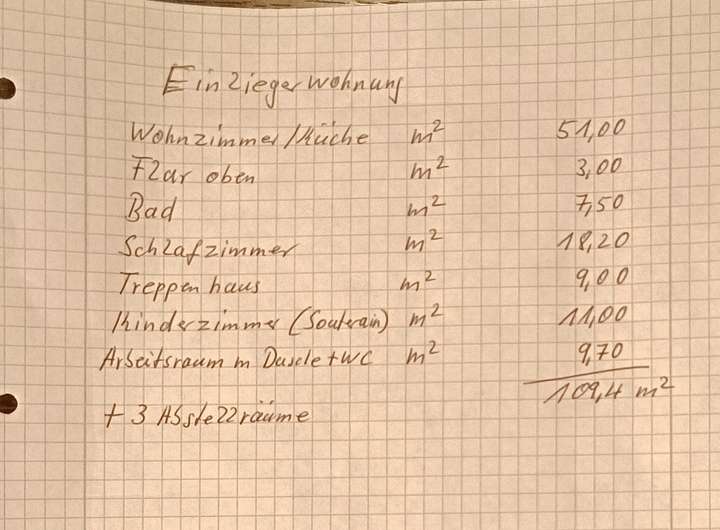 Einliegerwohnung
Wohnzimmer/Küche m² 51,00
Flur oben m² 3,00
Bad m² 7,50
Schlafzimmer m² 18,20
Treppenhaus m² 9,00
Kinderzimmer (Souterain) m² 11,00
Arbeitsraum m Dusche + WC m² 9,70
109,4 m²
+ 3 Abstellräume